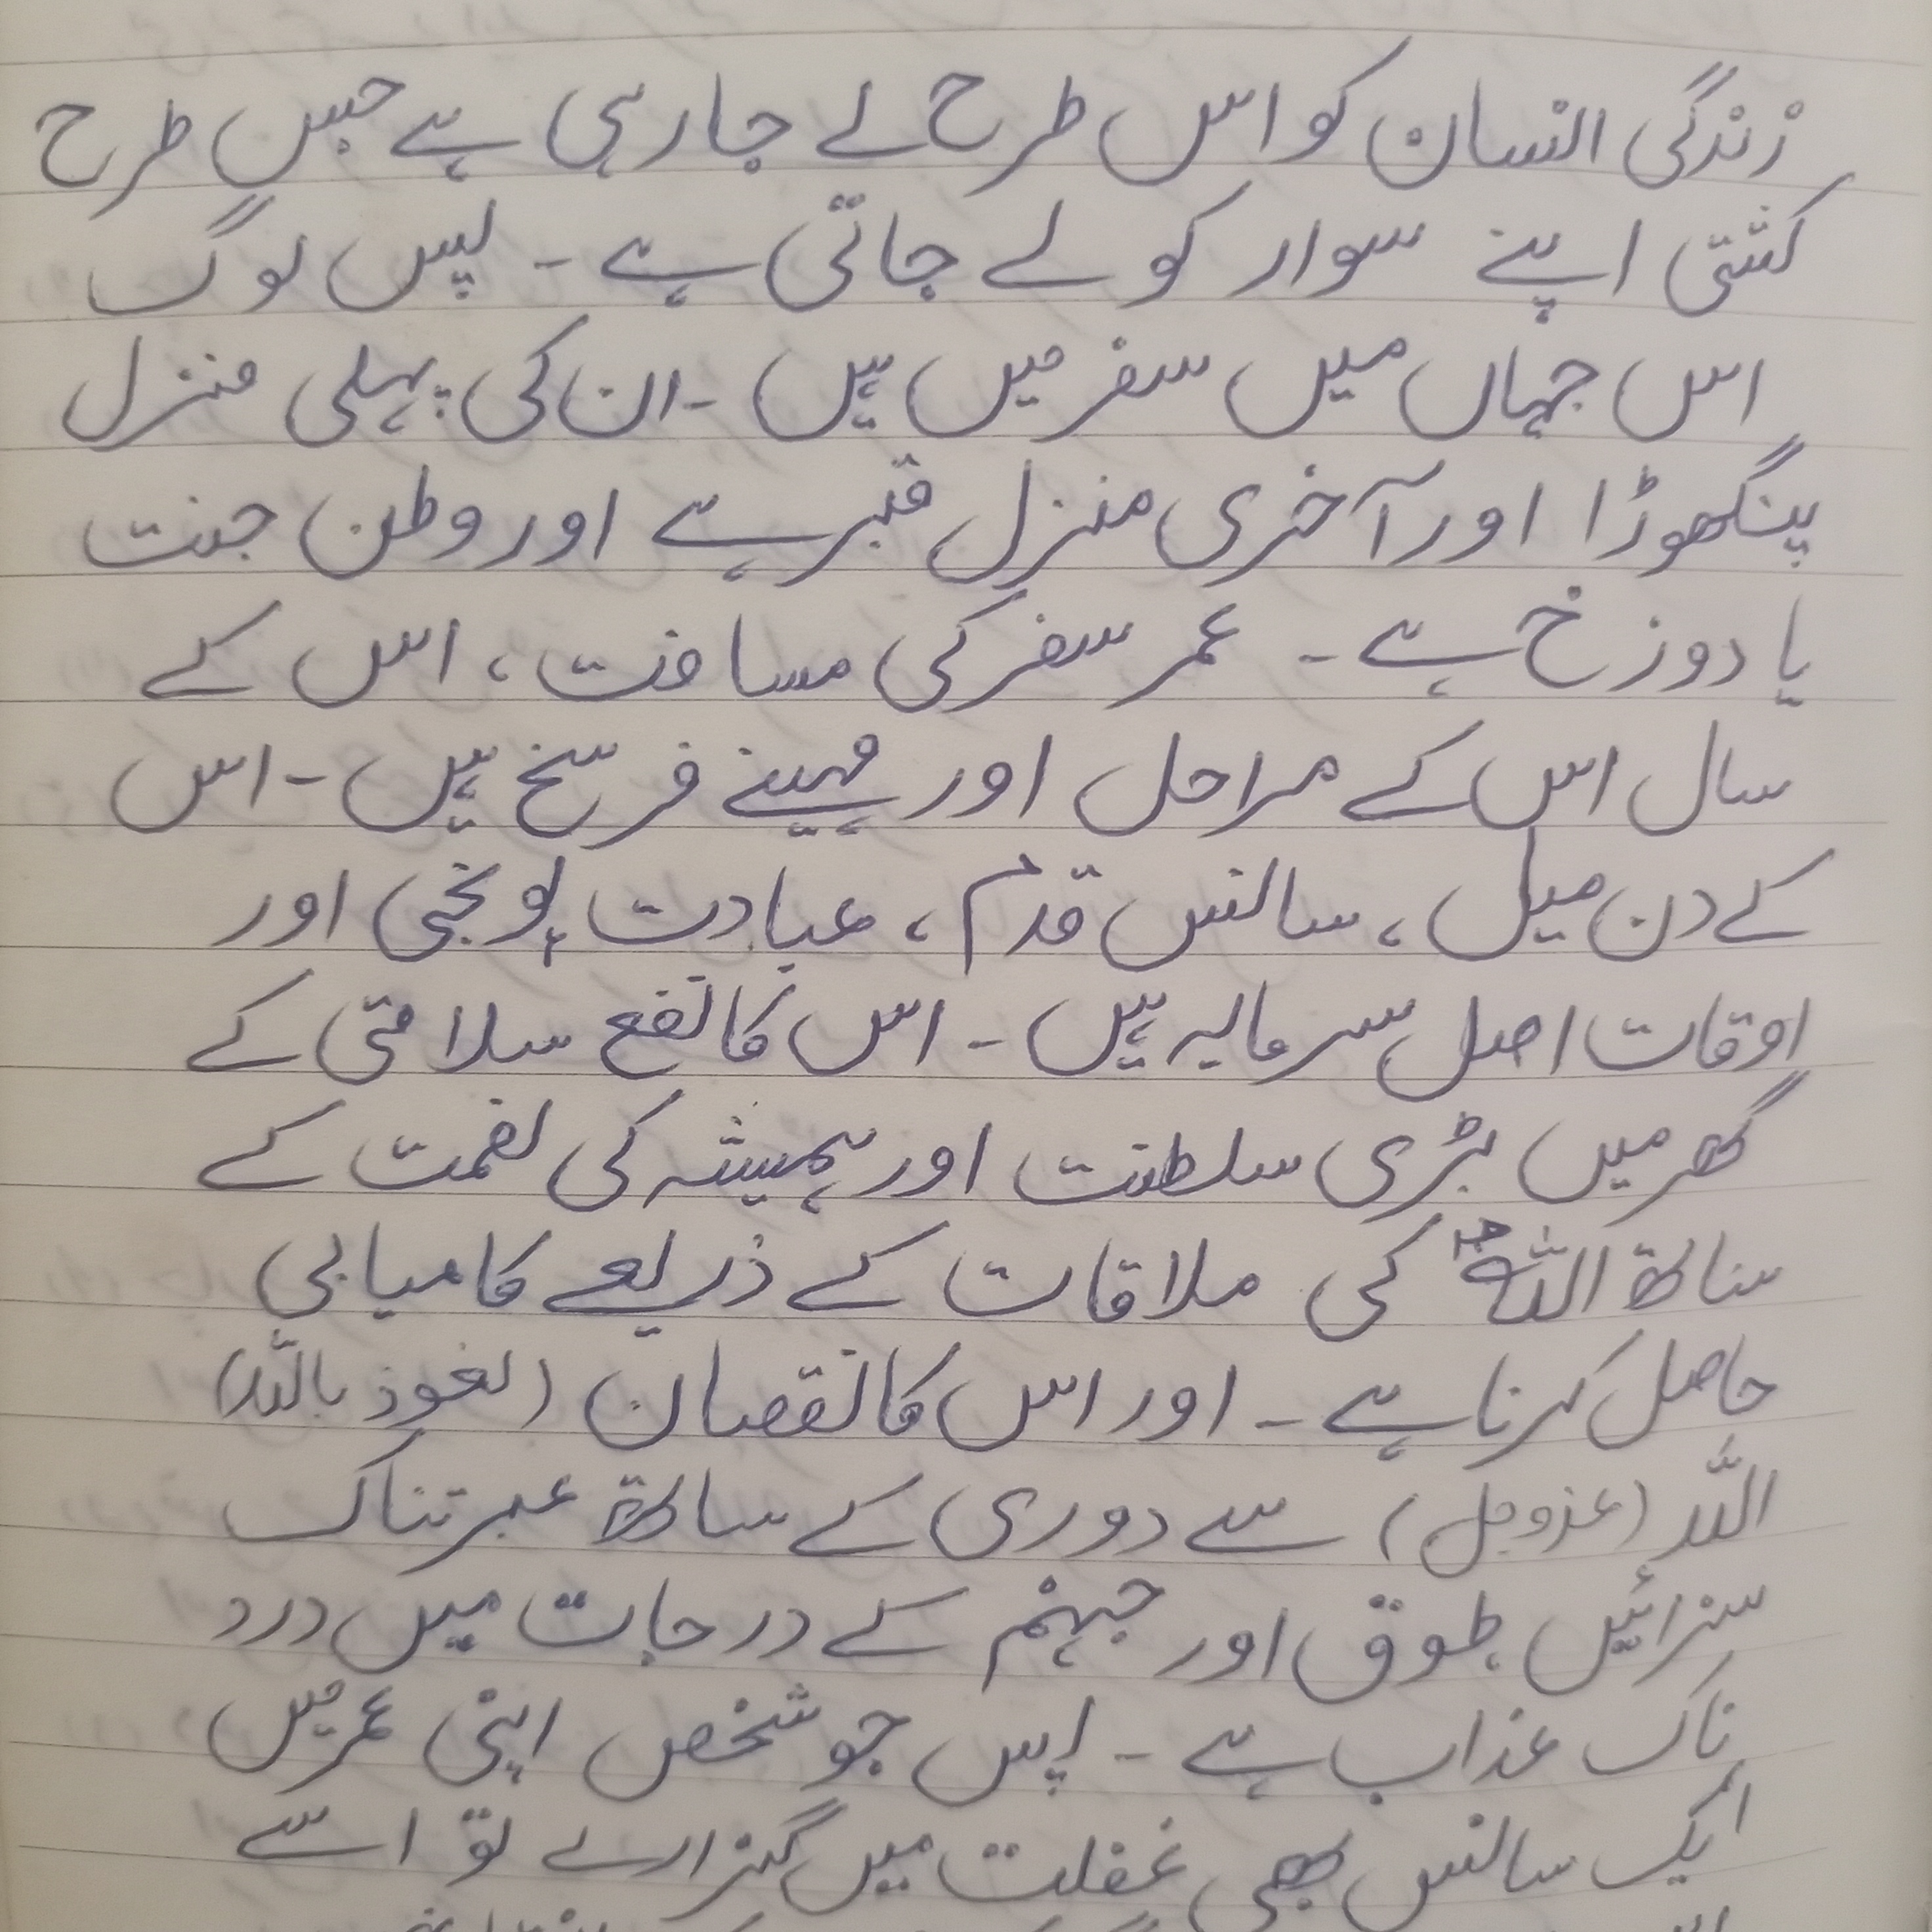 زندگی انسان کو اس طرح لے جارہی ہے جس طرح
کشتی اپنے سوار کو لے جاتی ہے ۔ پس لوگ
اس جہاں میں سفر میں ہیں ۔ ان کی پہلی منزل
پنگھوڑا اور آخری منزل قبر ہے اور وطن جنت
یا دوزخ ہے ۔ عمر سفر کی مسافت ، اس کے
سال اس کے مراحل اور مہینے فرسخ ہیں ۔ اس
کے دن میل ، سانس قدم ، عبادت پونجی اور
اوقات اصل سرمایہ ہیں ۔ اس کا نفع سلامتی کے
گھر میں بڑی سلطنت اور ہمیشہ کی نعمت کے
ساتھ اللہ کی ملاقات کے ذریعے کامیابی
حاصل کرنا ہے ۔ اور اس کا نقصان (نعوذ باللہ)
اللہ (عزوجل) سے دوری کے ساتھ عبرتناک
سزائیں طوق اور جہنم کے درجات میں درد
ناک عذاب ہے ۔ پس جو شخص اپنی عمر میں
ایک سانس بھی غفلت میں گزارے تو اسے